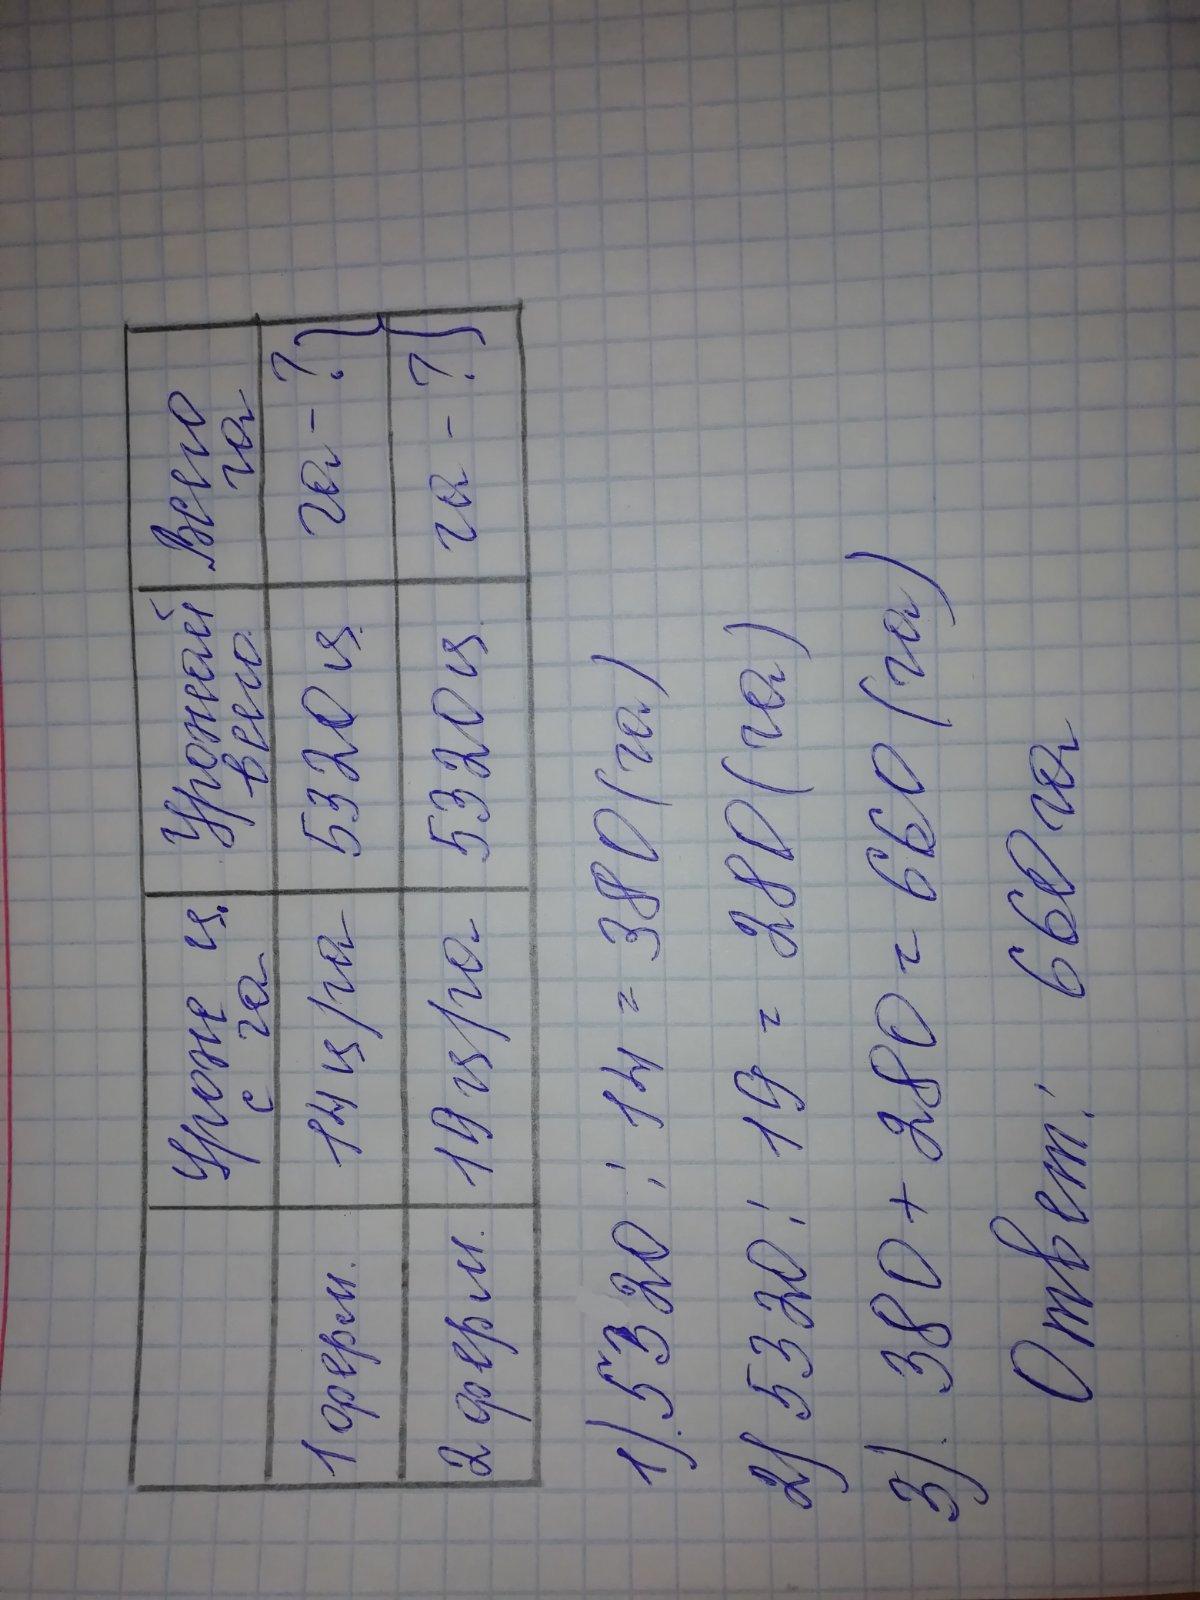 Урож ц. Урожай Всего
с га всего га
1 ферм. 14 ц/га 5320 ц. га - ?
2 ферм. 19 ц/га 5320 ц га - ?
1). 5320 : 14 = 380 (га)
2) 5320 : 19 = 280 (га)
3). 380 + 280 = 660 (га)
Ответ: 660 га